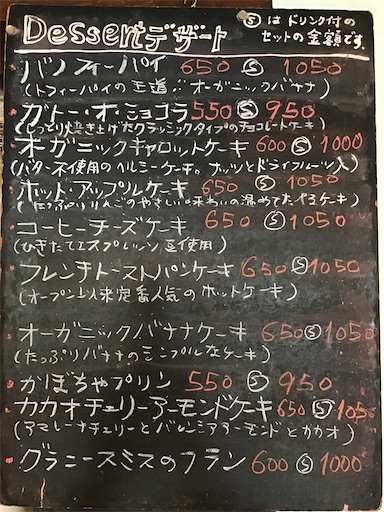 Dessert デザート
Ⓢ は ドリンク付の
セットの金額です。
バノフィーパイ 650 Ⓢ 1050
(トフィーパイの王道!! オーガニックバナナ)
ガトー・オ・ショコラ 550 Ⓢ 950
(しっとり焼き上げたクラッシックタイプのチョコレートケーキ)
オーガニックキャロットケーキ 600 Ⓢ 1000
(バター不使用のヘルシーケーキ。ナッツとドライフルーツ入)
ホットアップルケーキ 650 Ⓢ 1050
(たっぷりりんごのやさしい味わいの温めてたべるケーキ)
コーヒーチーズケーキ 650 Ⓢ 1050
(ひきたてエスプレッソ豆使用)
フレンチトーストパンケーキ 650 Ⓢ 1050
(オープン以来定番人気のホットケーキ)
オーガニックバナナケーキ 650 Ⓢ 1050
(たっぷりバナナのシンプルなケーキ)
かぼちゃプリン 550 Ⓢ 950
カカオチェリーアーモンドケーキ 650 Ⓢ 105
(アマレーナチェリーとバレンシアアーモンドとカカオ)
グラニースミスのフラン 600 Ⓢ 1000